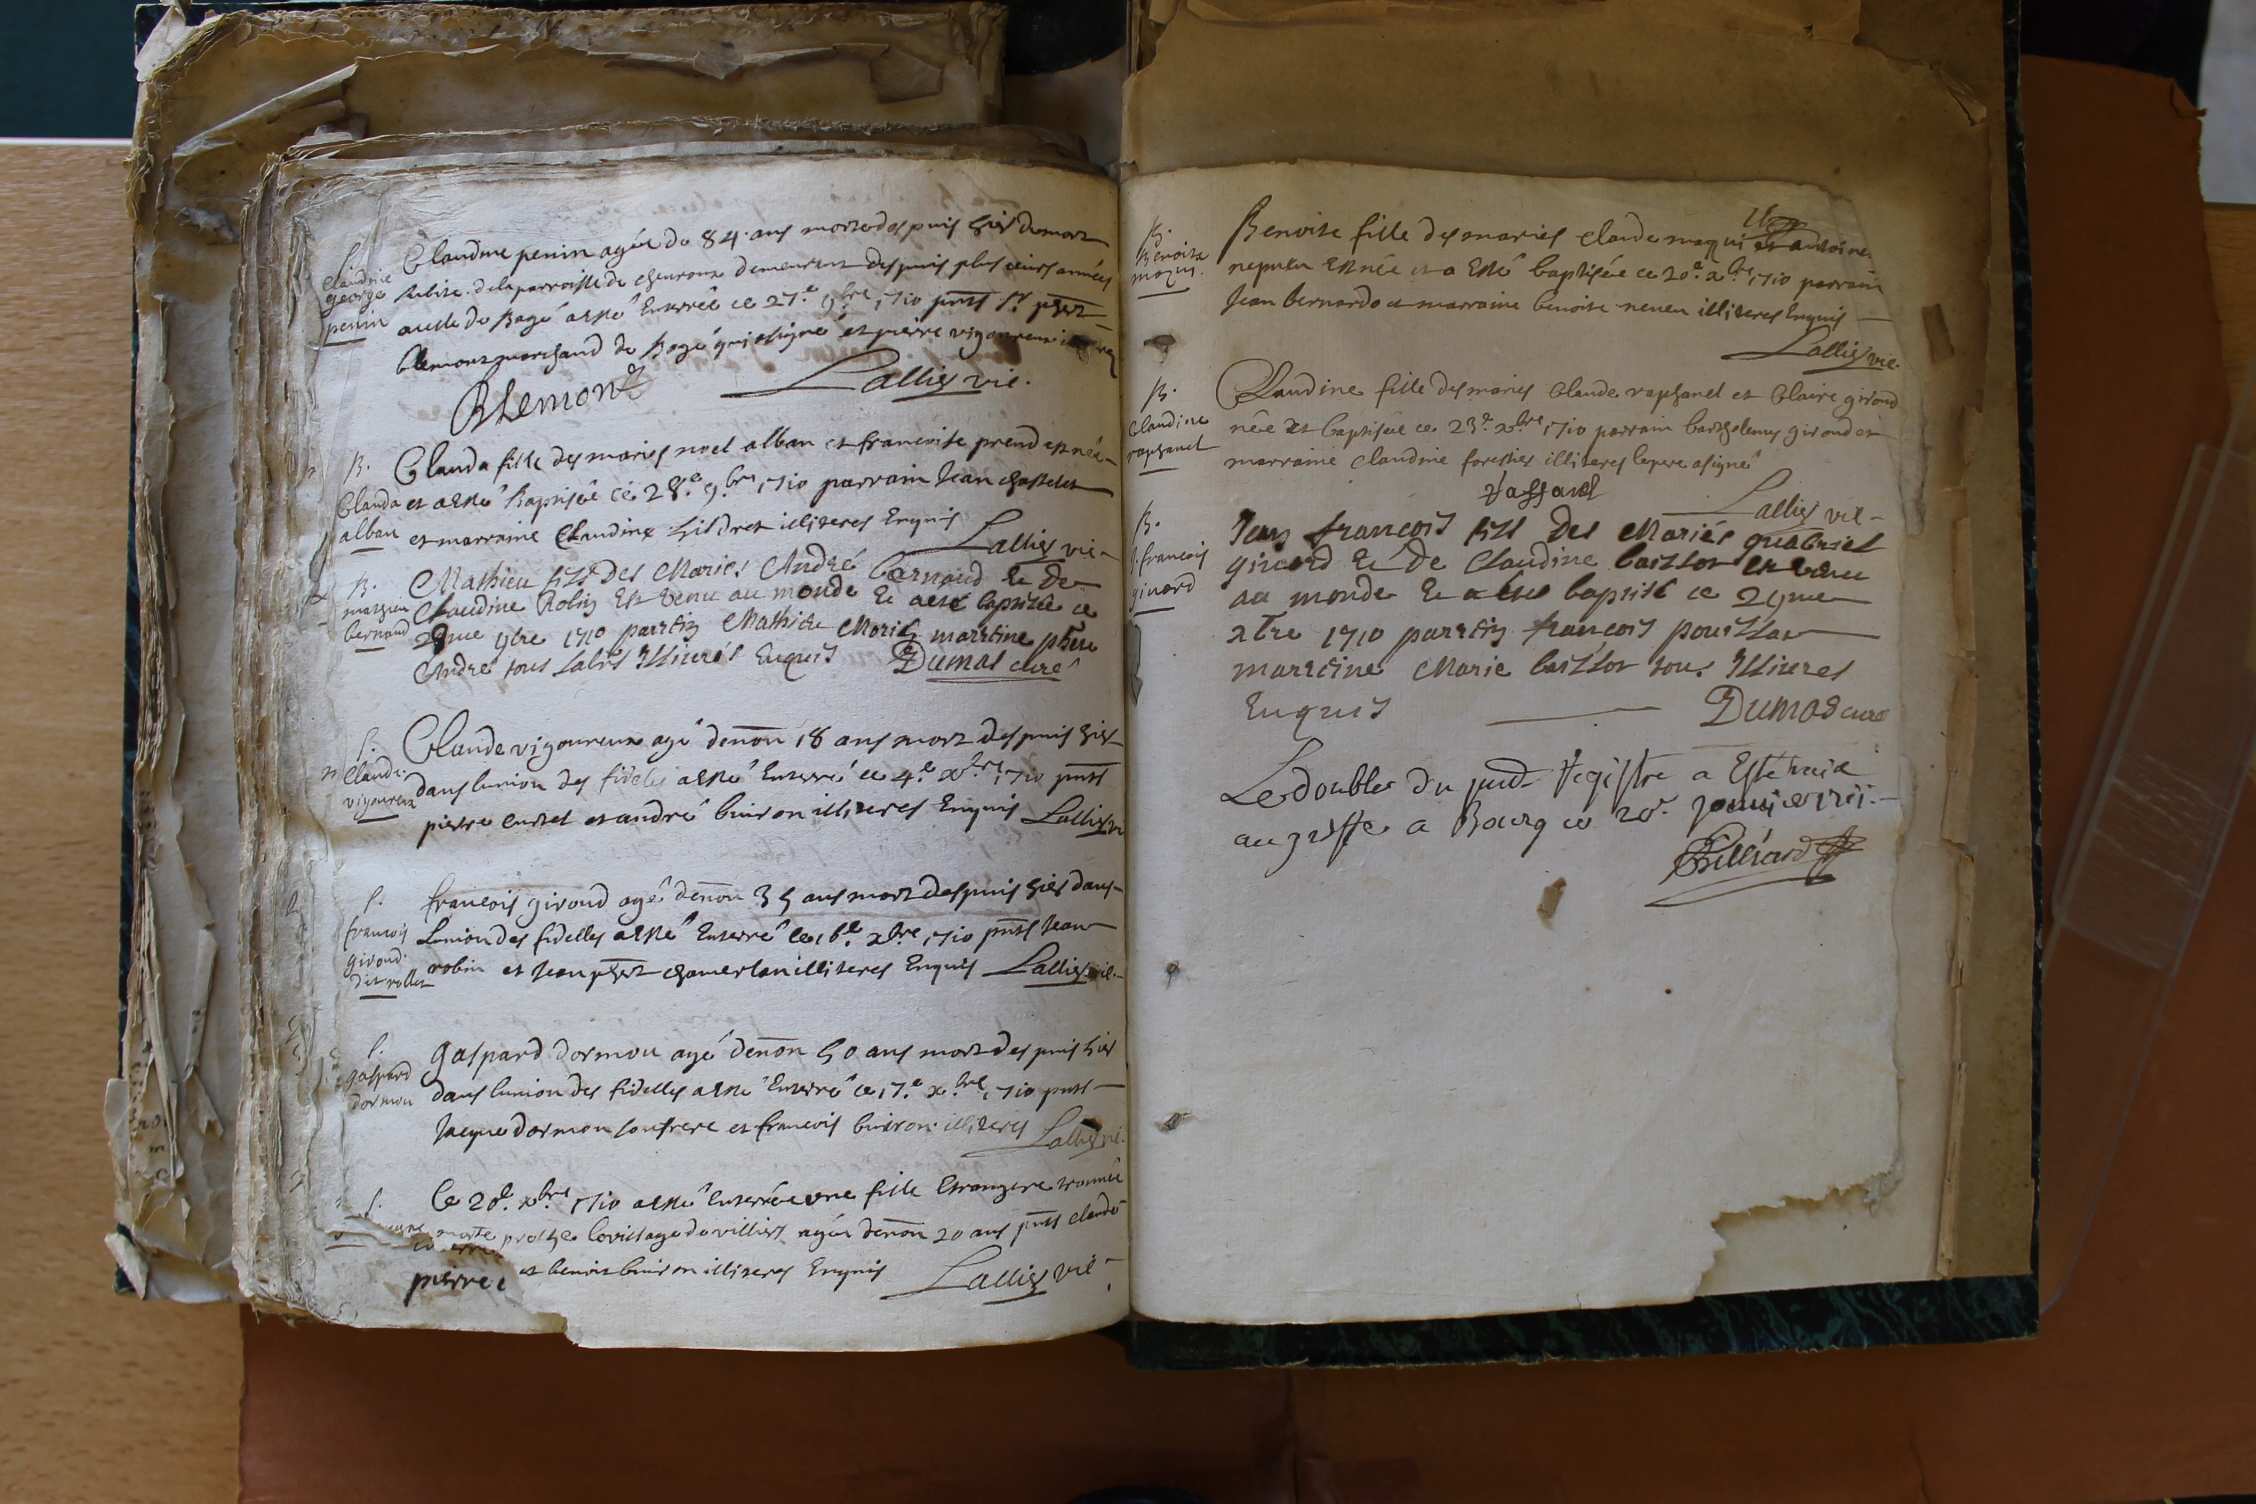 S.
Claudine
george
penin
Claudine penin agée de 84. ans morte des puis hier de mort
subite. de la parroisse de cheuroux demeurant des puis plus ieurs années
a celle de Bagé a esté Enterrée ce 27.e 9.bre 1710 pnts Sr. phert
Clemont marchand de Bagé qui a signé et pierre vigoureux
Clemont
Lallier vic.
B.
Clauda
alban
Clauda fille des mariés noel alban et francoise prend est née
et a esté Baptisée ce 28.e 9.bre 1710 parrain Jean chastelet
et marraine Claudine illiteres Enquis
Lallier vic
B.
bernaud
Mathieu fils Des Mariés André Bernaud Et De
Claudine Robin Est venu au monde Et a esté baptisé ce
29me 9bre 1710 parrein Mathieu Morel marreine phere
André tous Illiterés Enquis Dumas curé
S.
Claude
vigoureux
Claude vigoureux agé denon 18 ans mort des puis hier
dans lunion des fideles a esté Enterré ce 4.e xbre 1710 pnts
pierre curtet et andré buiron illiteres Enquis Lallier vi
S.
francois
giroud
dit rollet
francois giroud agé denon 35 ans mort des puis hier dans
Lunion des fidelles a esté Enterré ce 16.e xbre 1710 pnts Jean
robin et Jean phert chamerlan illiteres Enquis Lallier vic.
S.
gaspard
dormou
gaspard dormou agé denon 50 ans mort des puis hier
dans lunion des fidelles a esté Enterré ce 17.e x.bre 1710 pnts
Jacque dormou son frere et francois buiron illiteres Lallier vic.
S.
Ce 20.e xbre 1710 a esté Enterrée une fille Estrangere trouuée
morte proche le village de villiers agée denon 20 ans pnts claude
pierre et benoit buiron illiteres Enquis Lallier vic
B.
Benoite
moqui.
Benoite fille des mariés claude moqui et antoine
nepueu Est née et a Esté baptisée ce 20.e x.bre 1710 parrain
Jean bernardo et marraine benoite neueu illiteres Enquis
Lallier vic.
B.
Claudine
raphanel
Claudine fille des mariés Claude raphanel et Claire giroud
née et baptisée ce 23.e xbre 1710 parrain bartholemy giroud et
marraine claudine forestier illiteres le pere a signé
Lallier vic
B.
J. francois
girard
Jean francois fils Des Mariés guabriel
girard Et De Claudine baillot Est venu
au monde Et a esté baptisé ce 29me
xbre 1710 parrein francois
marreine Marie baillot tous Illiteres
Enquis
Dumas curé
Le double du pnt Registre a Esté
au greffe a Bourg ce 20e januier 1711.